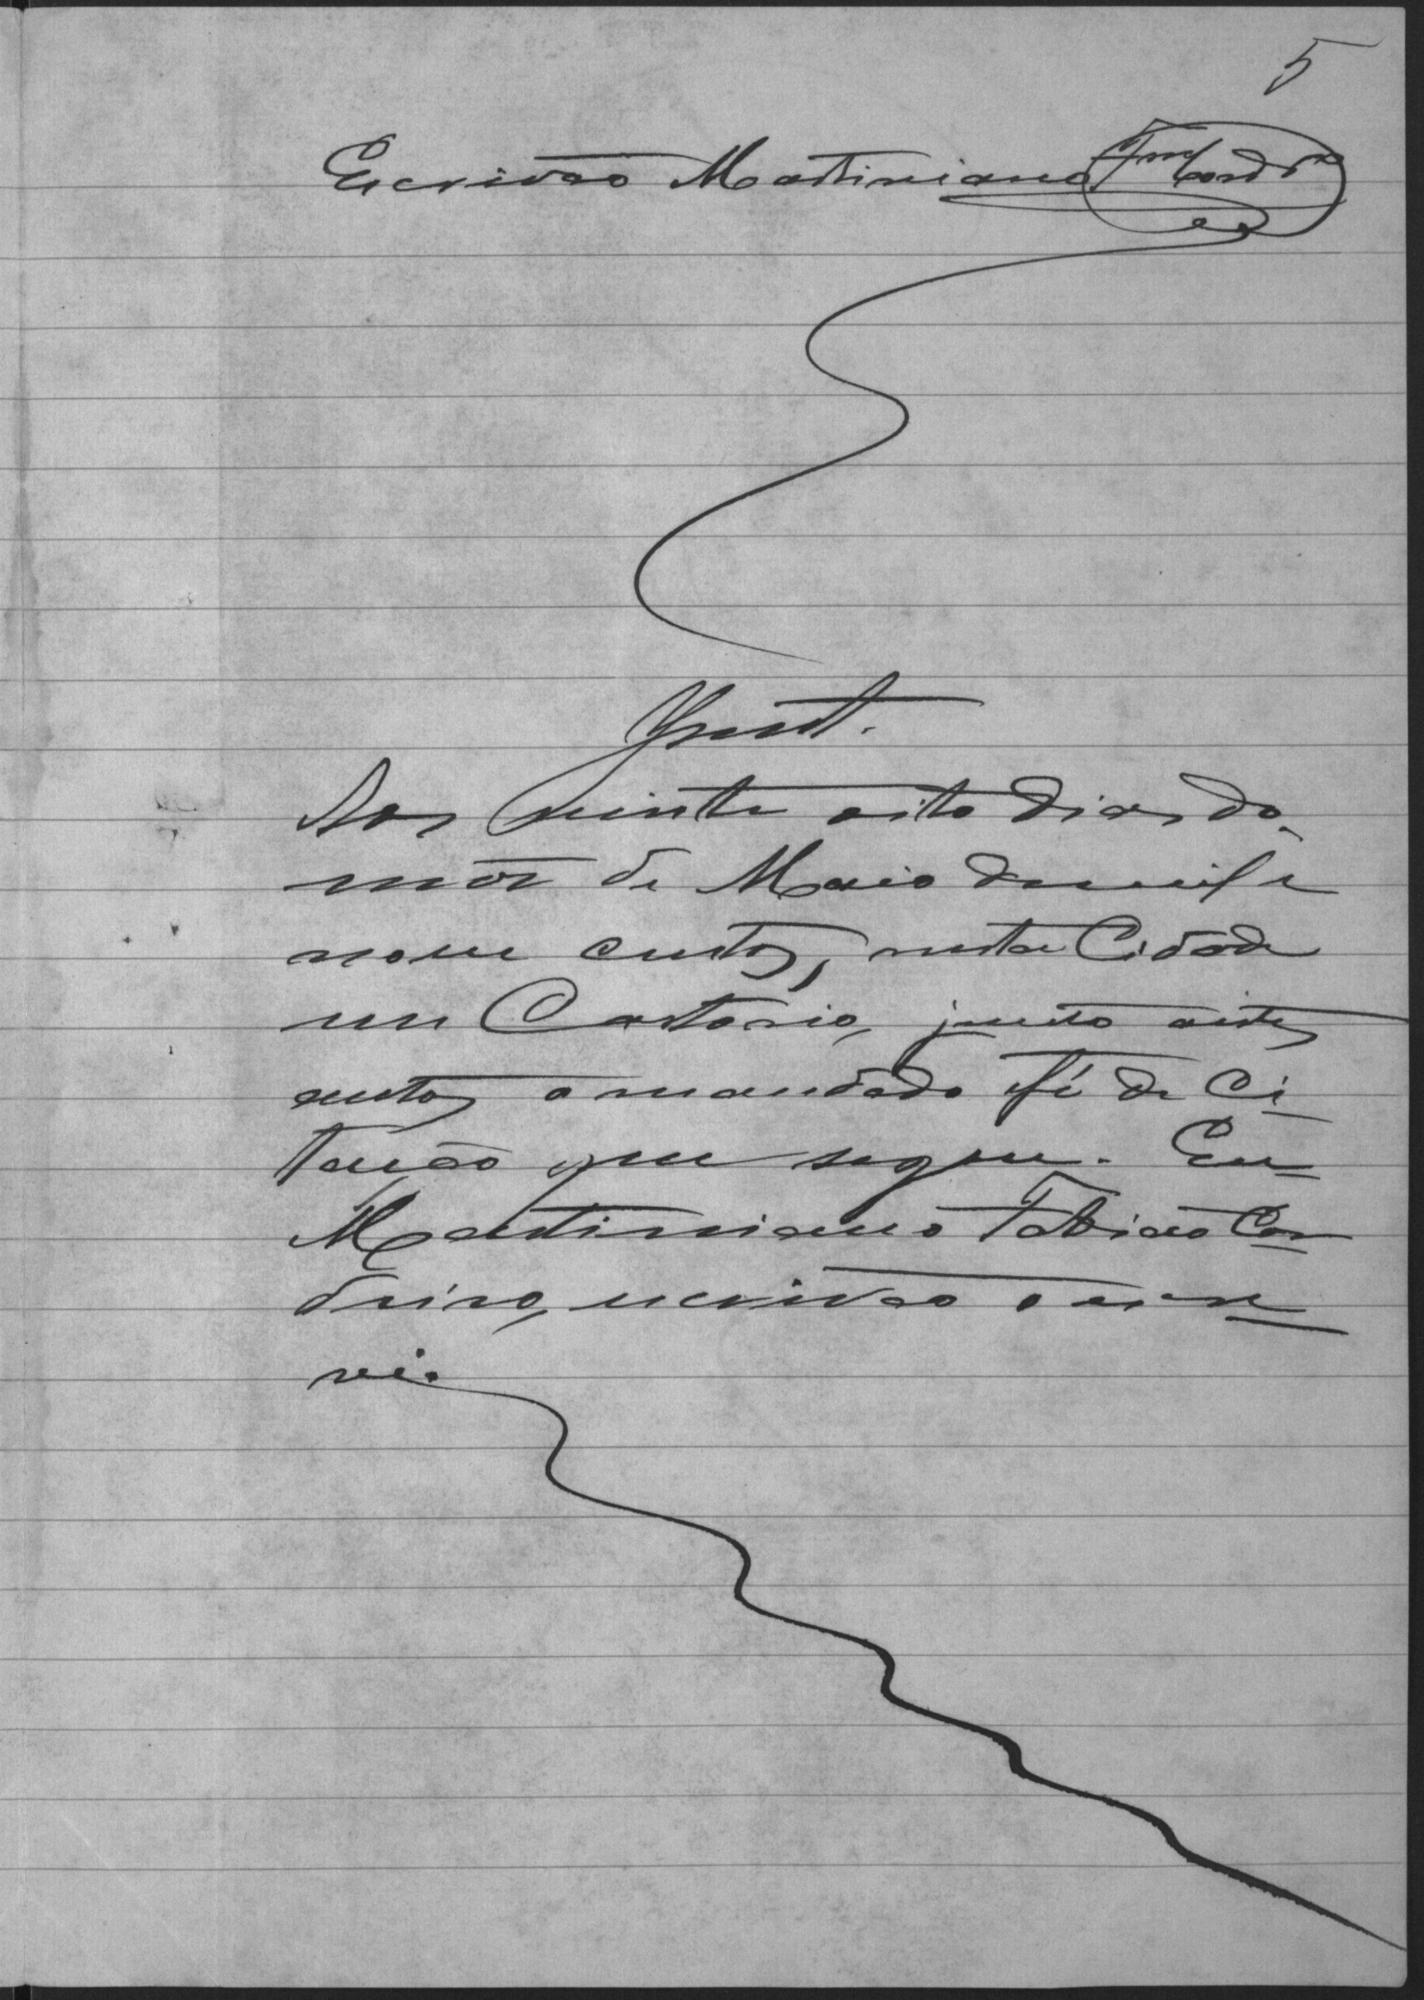 5
Escrivão Martiniano
Junt.
Aos vinte oito dias do
mez de Maio de mil e
nove centos, nesta Cidade
em Cartorio, junto aestes
autos o mandado fé de Ci
tação que segue. Eu
Martiniano Fabiao Cor
deiro, escrivão o escre
vi.